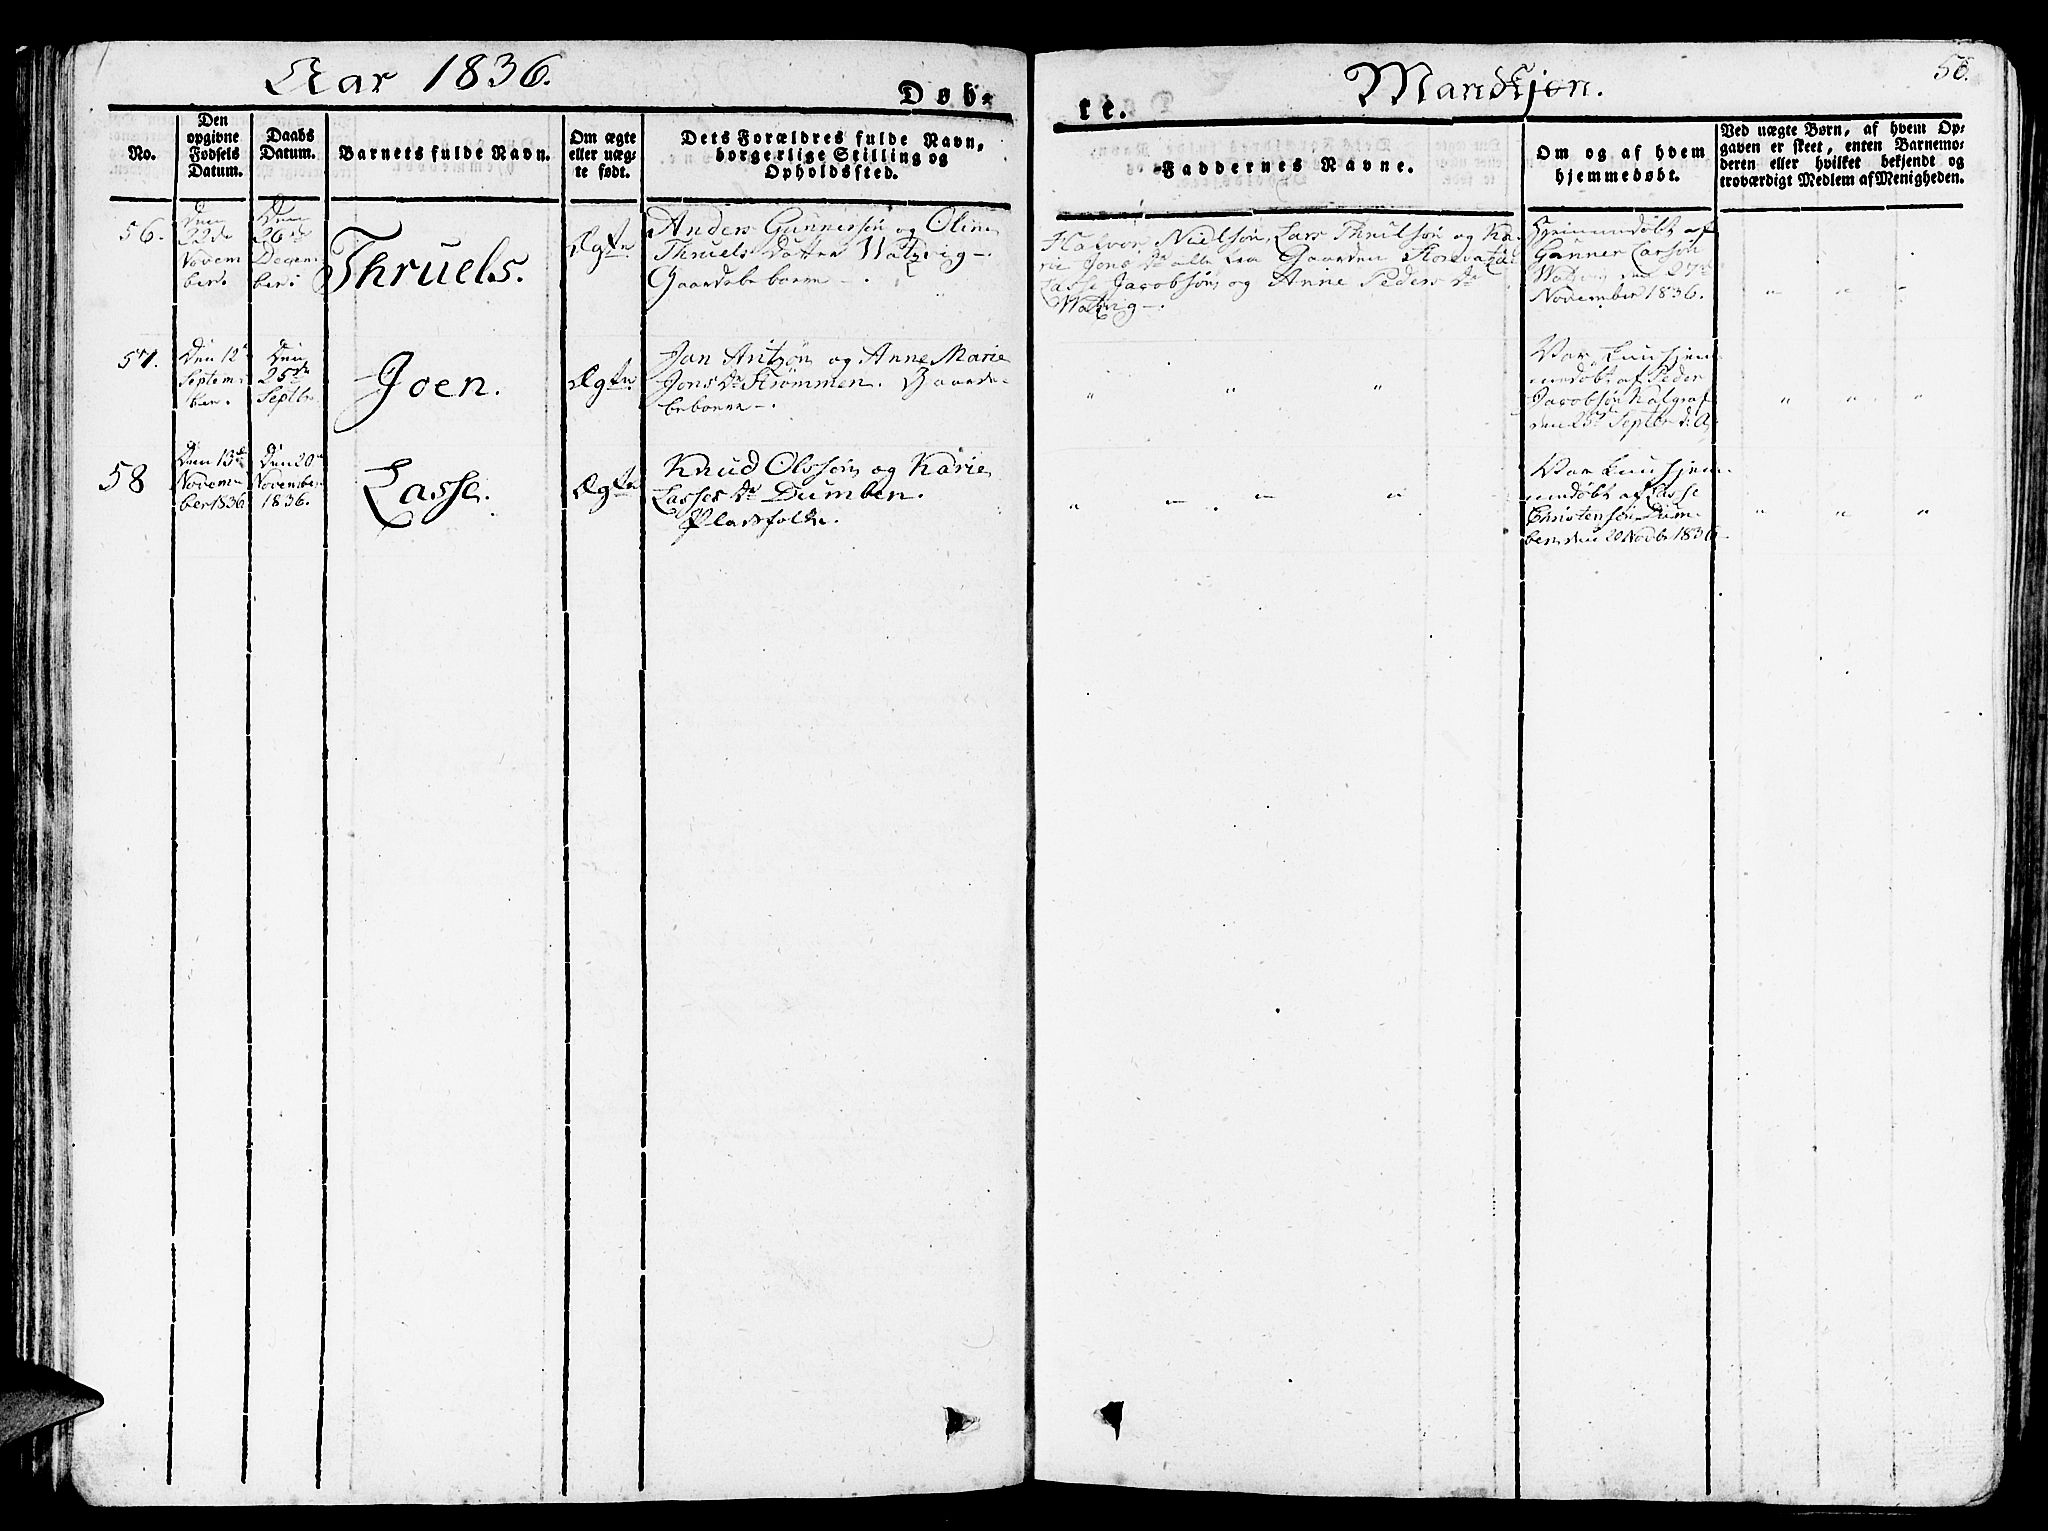 Aar 1836.
Døb-
te.
Mandkjøn.
50.
No.
Den opgivne Fødsels Datum.
Daabs Datum.
Barnets fulde Navn.
Om ægte eller uægte født.
Dets Forældres fulde Navn, borgerlige Stilling og Opholdssted.
Faddernes Navne.
Om og af hvem hjemmedøbt.
Ved uægte Børn, af hvem Opgaven er skeet, enten Barnemoderen eller hvilket bekjendt og troværdigt Medlem af Menigheden.
56.
Den
22de
Novem
ber.
Den
26de
Decem
ber.
Thruels.
Ægte
Anders Gunnersøn og Oline
Thruels Datter Watzvig -.
Gaardbeboere -.
Halvor Nielsøn, Lars Thrulsøn og Ka-
rie Jons Dr alle fra Gaarden
Lasse Jacobsøn og Anne Peders Dr
Watzvig -.
Hjemmedøbt af
Gunner Larsøn
Watzvig den 27de
November 1836.
57.
Den 12te
Septem
ber.
Den
25de
Septbr
Joen.
Ægte
Jan Aritzøn og Anne Marie
Jons Dr Strømmen. Gaard-
beboere -.
Var kun hjem
medøbt af Peder
Jacobsøn Kalgraf
den 25de Septbr d: A:
58
Den 13de
Novem
ber 1836
Den 20de
November
1836.
Lasse.
Ægte
Knud Olssøn og Karie
Lasses Dr Dumben.
Pladsfolk.
Var kun hjem
medøbt af Lasse
Christensøn Dum
ben den 20 Novbr 1836.